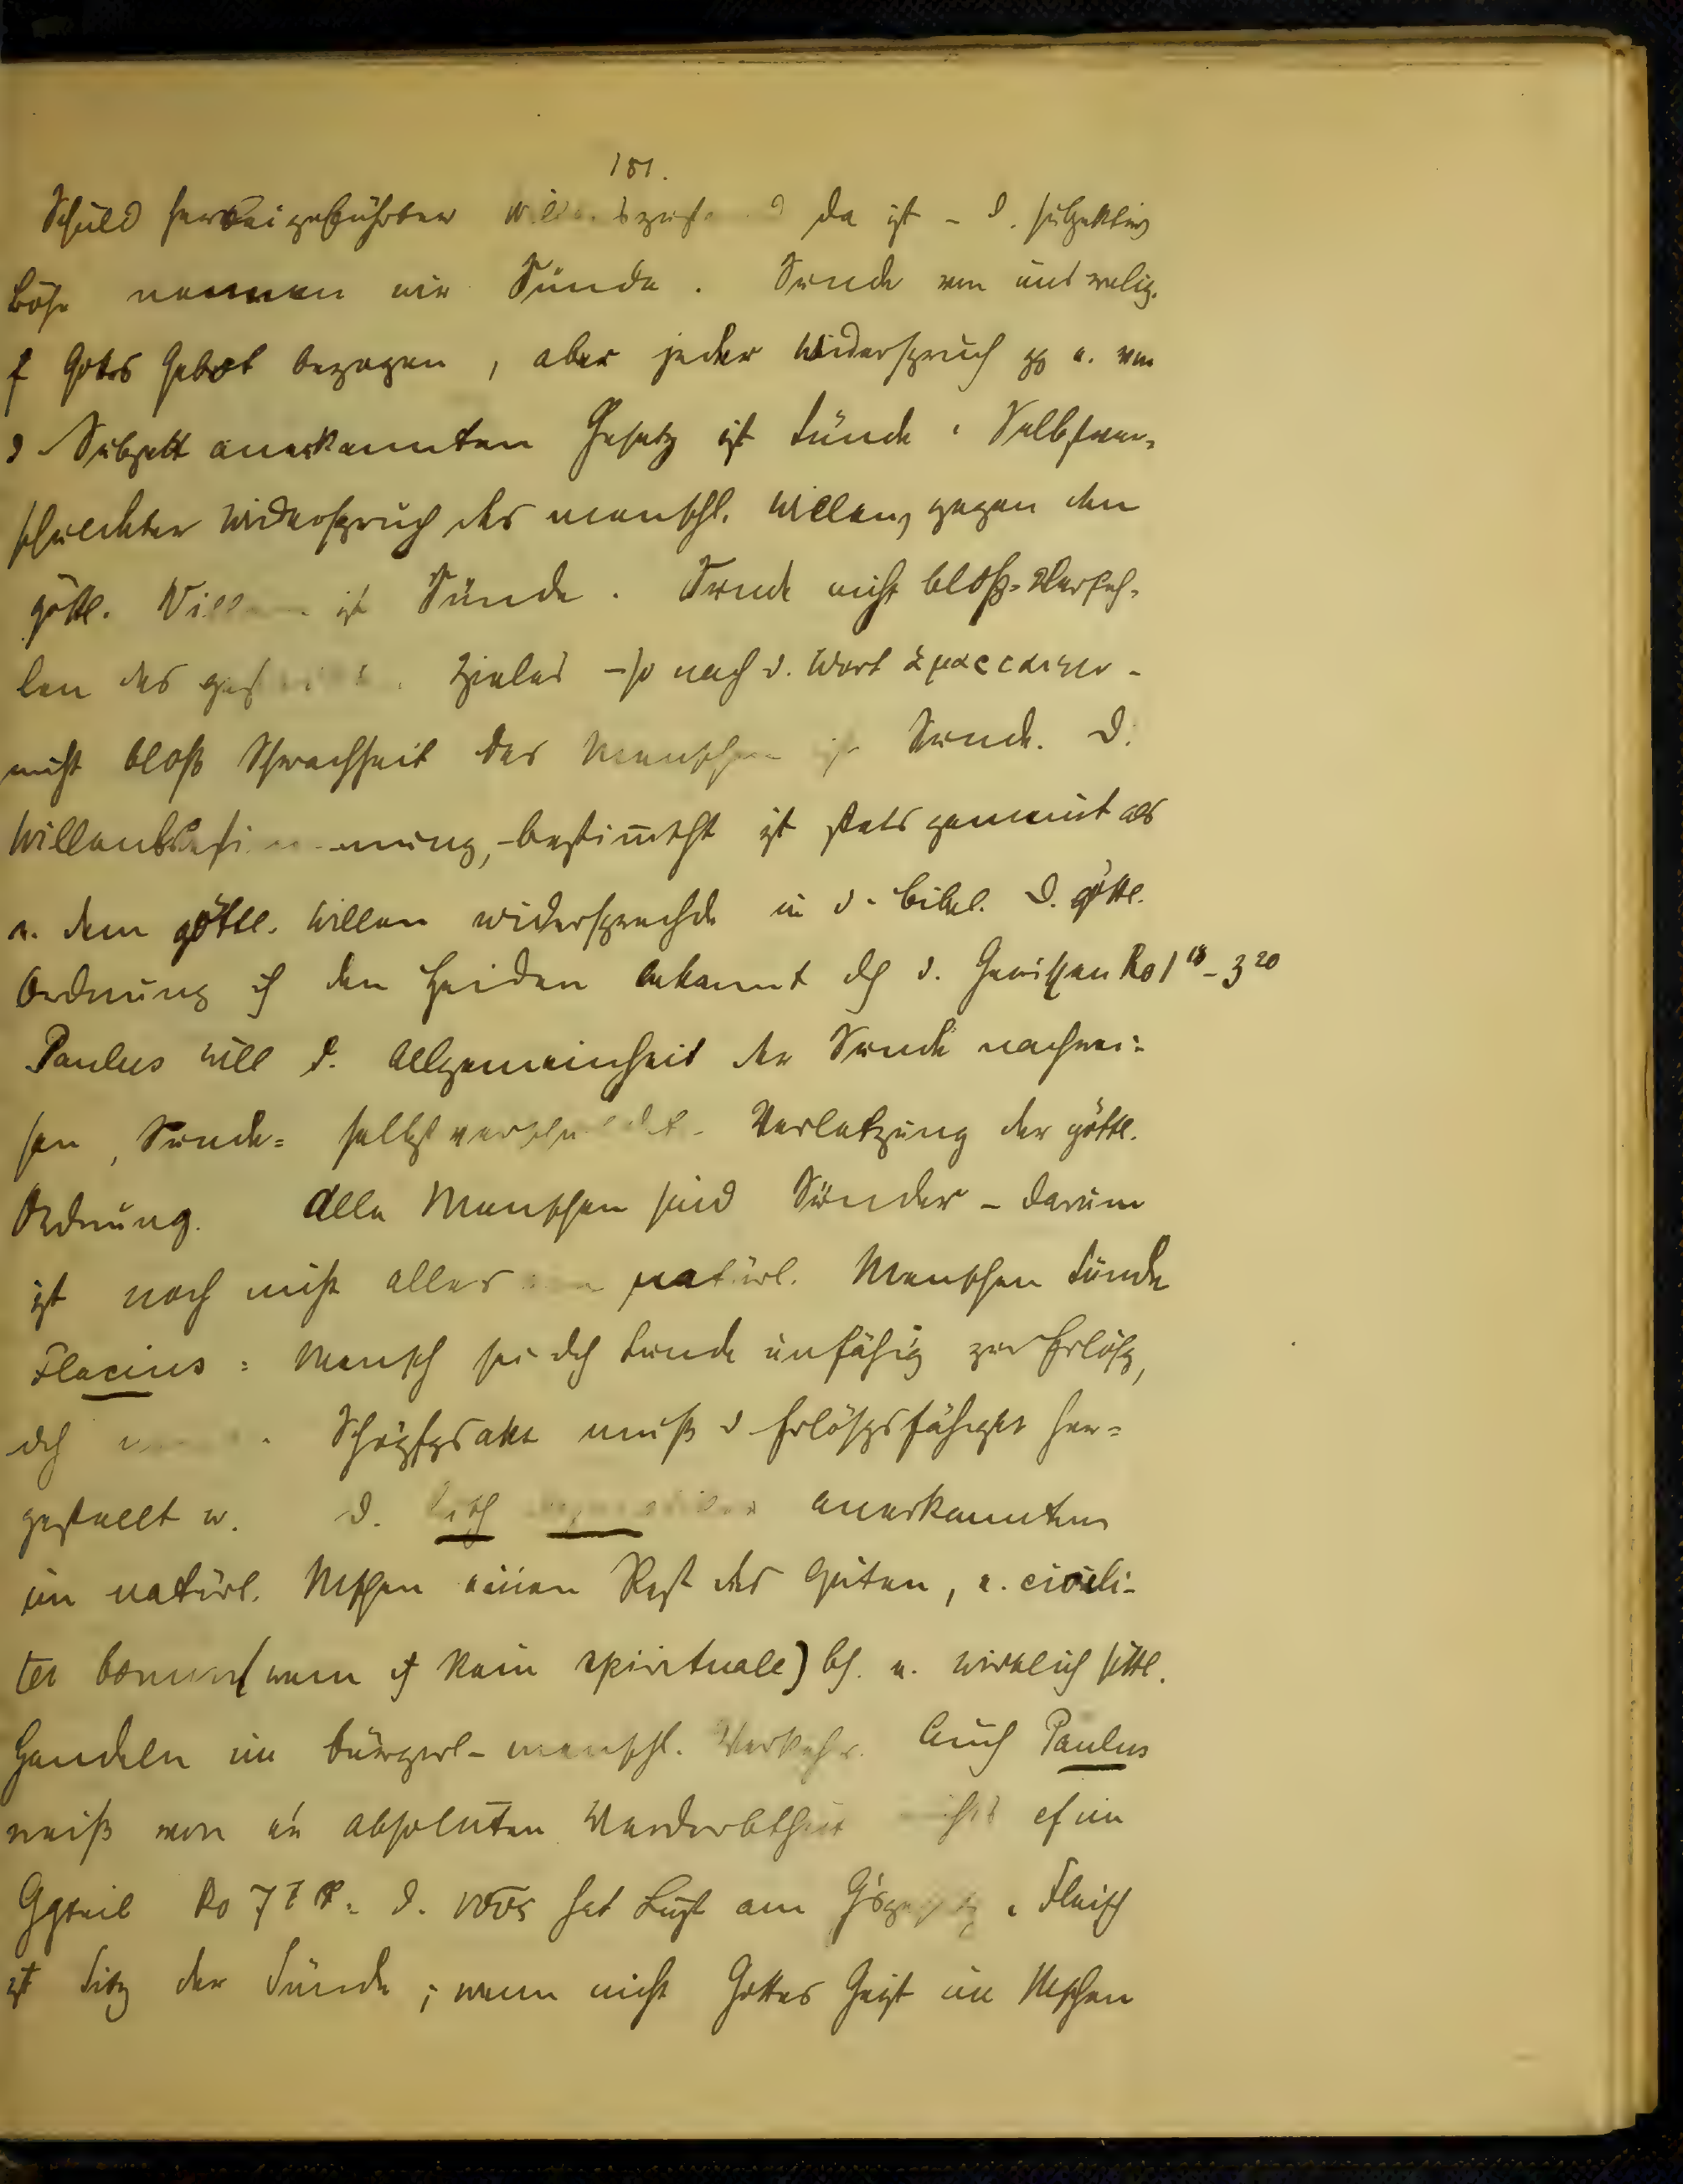 181.
Schuld herbeigeführter da ist - d. subjektiv
Böse nennen wir Sünde. Sünde von uns relig.
f Gottes Gebot bezogen, aber jeder Widerspruch gg e. vom
d Subjekt anerkannten Gesetz ist Sünde. Selbstver-
schuldeter Widerspruch des menschl. Willens gegen den
göttl. Willen ist Sünde. Sünde nicht bloß Verfeh-
len des Zieles - so nach d. Wort -
nicht bloß Schwachheit des Menschen ist Sünde. D.
ist stets gemeint als
e. dem göttl. Willen widersprechde in d. Bibel. D. göttl.
Ordnung ist den Heiden bekannt dch d. Gewissen Ro 1 18 - 3 20
Paulus will d. Allgemeinheit der Sünde nachwei-
sen, Sünde = selbstverschuldet. Verletzung der göttl.
Ordnung. Alle Menschen sind Sünder - darum
ist noch nicht alles natürl. Menschen Sünde
Flacius: Mensch sei dch Sünde unfähig zur Erlösg,
dch Schöpfgsakt muß d Erlösgsfähigkt her-
gestellt w. D. anerkannten
im natürl. Mschen einen Rest des Guten, e. civili-
ter bonum (wenn kein spirituale) bes. e. wirklich sittl.
Handeln im bürgerl-menschl. Verkehr. Auch Paulus
weiß von absoluten Verderbtheit nichts cf im
Ggteil Ro 7 D. νοῦς hat Lust am . Fleisch
ist Sitz der Sünde; wenn nicht Gottes Geist im Mschen